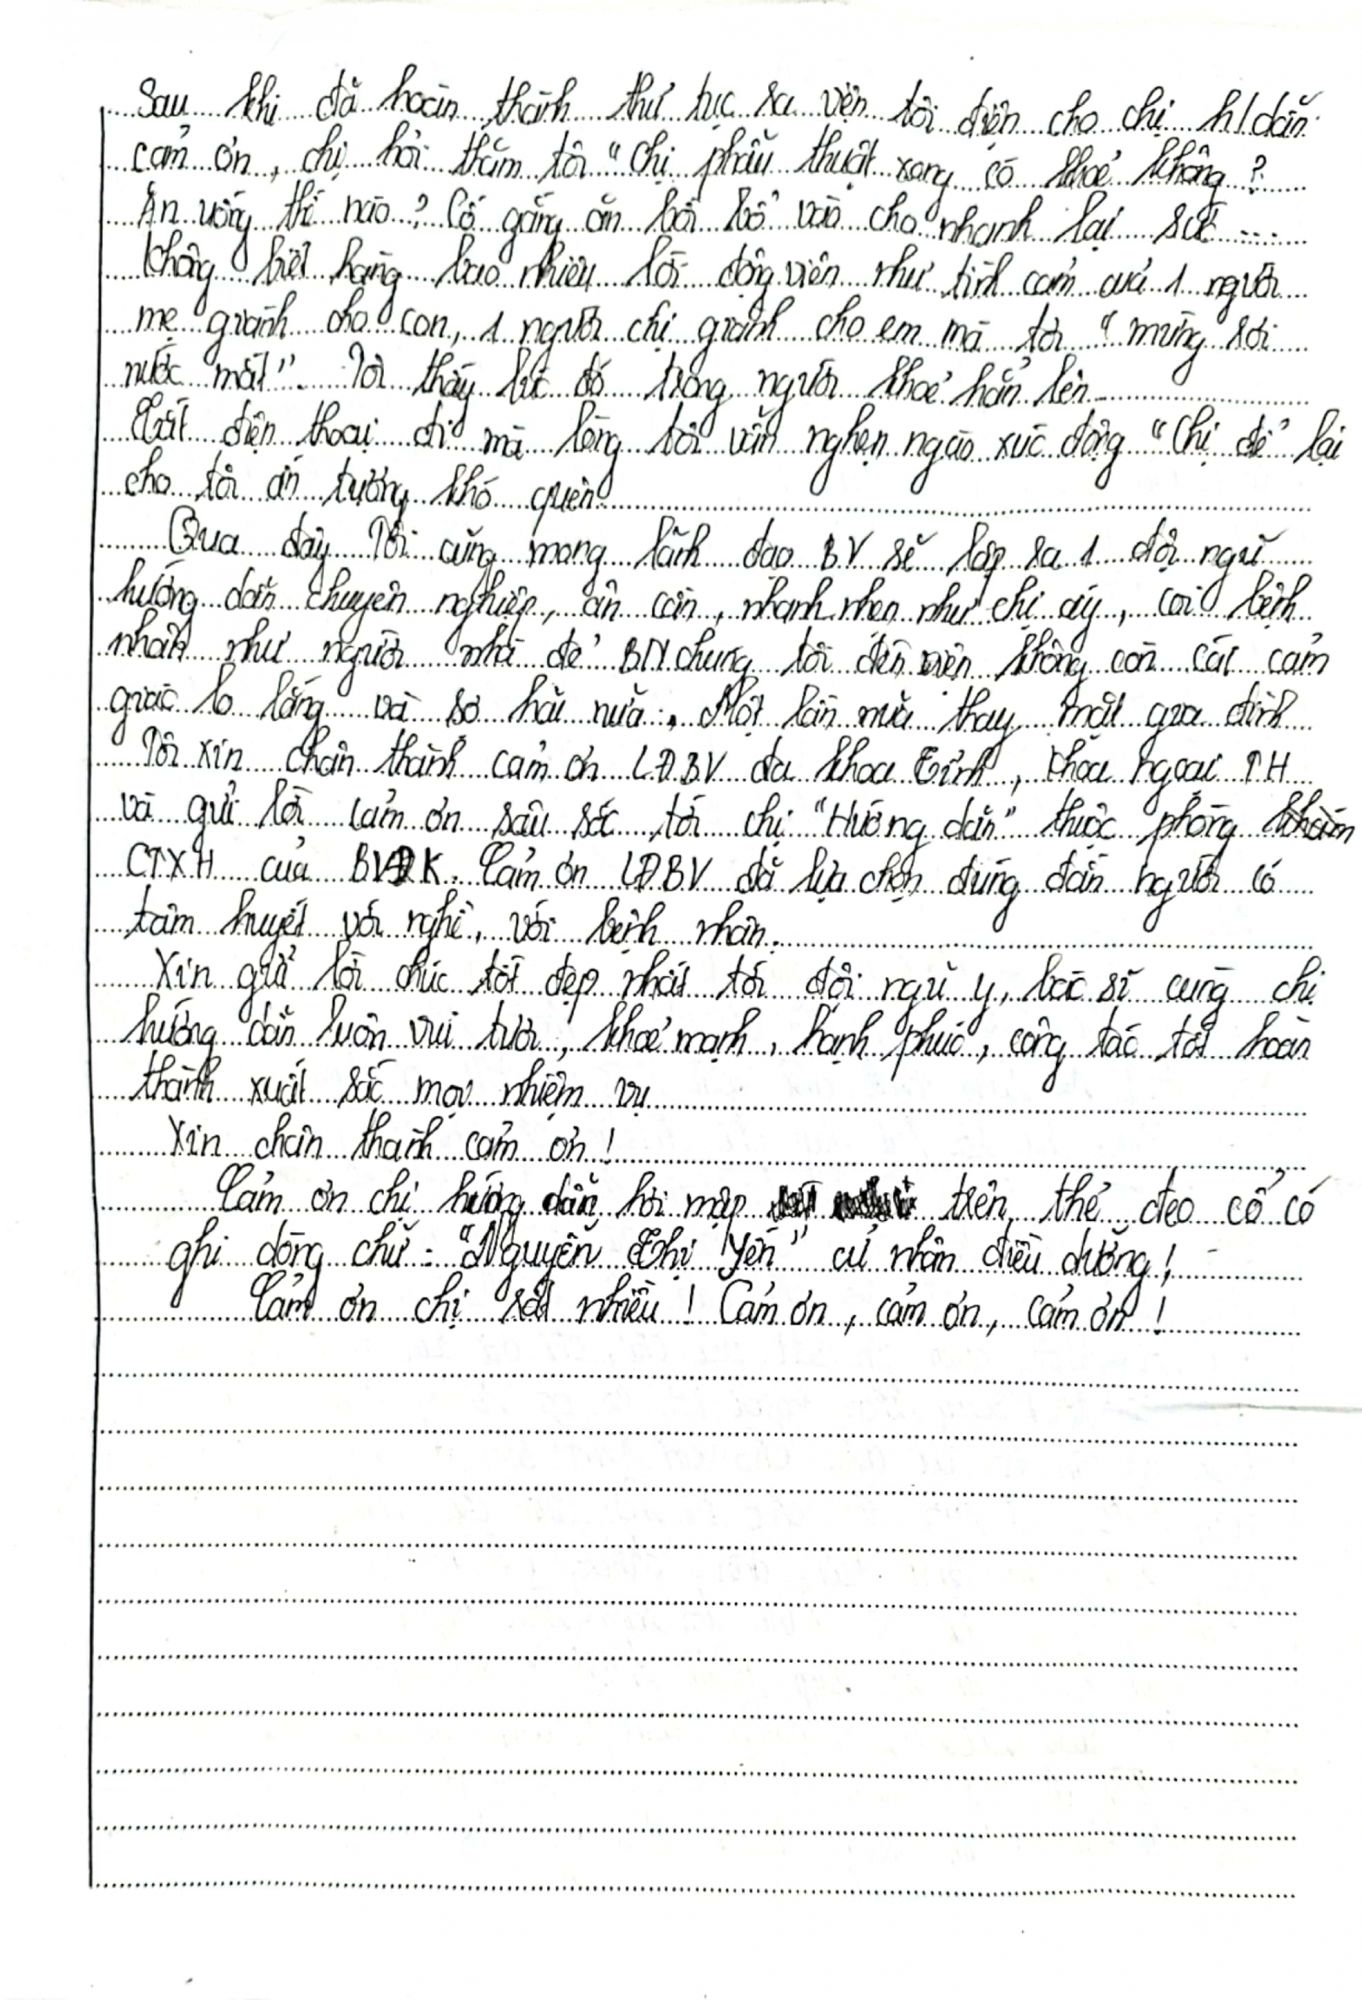 Sau khi đã hoàn thành thủ tục ra viện tôi điện cho chị h/dẫn
cảm ơn, chị hỏi thăm tôi "Chị phẫu thuật xong có khoẻ không?
Ăn uống thế nào? Cố gắng ăn bồi bổ vào cho nhanh lại sức ....
không biết hàng bao nhiêu lời động viên như tình cảm của 1 người
mẹ giành cho con, 1 người chị giành cho em mà tôi "mừng rơi
nước mắt". Tôi thấy lúc đó trong người khoẻ hẳn lên
Tắt điện thoại đi mà lòng tôi vẫn nghẹn ngào xúc động "Chị để" lại
cho tôi ấn tượng khó quên
Qua đây Tôi cũng mong lãnh đạo BV sẽ lập ra 1 đội ngũ
hướng dẫn chuyên nghiệp, ân cần, nhanh nhẹn như chị ấy, coi bệnh
nhân như người nhà để BN chúng tôi đến viện không còn cái cảm
giác lo lắng và sợ hãi nữa. Một lần nữa thay mặt gia đình
Tôi xin chân thành cảm ơn LĐBV đa khoa Tỉnh, khoa ngoại TH
và gửi lời cảm ơn sâu sắc tới chị "Hướng dẫn" thuộc phòng khám
CTXH của BVĐK. Cảm ơn LĐBV đã lựa chọn đúng đắn người có
tâm huyết với nghề, với bệnh nhân.
Xin gửi lời chúc tốt đẹp nhất tới đội ngũ y, bác sĩ cùng chị
hướng dẫn luôn vui tươi, khoẻ mạnh, hạnh phúc, công tác tốt hoàn
thành xuất sắc mọi nhiệm vụ
Xin chân thành cảm ơn!
Cảm ơn chị hướng dẫn hơi mập trên thẻ đeo cổ có
ghi dòng chữ: "Nguyễn Thị Yến" cử nhân điều dưỡng!
Cảm ơn chị rất nhiều! Cảm ơn, cảm ơn, cảm ơn!